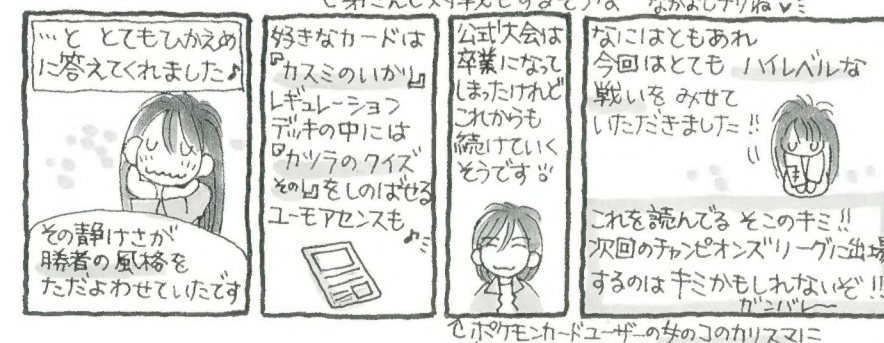 弟さんと対戦もするそうな なかよしだわね
…と とてもひかえめ
に答えてくれました♪
その静けさが
勝者の風格を
ただよわせていたです
好きなカードは
『カスミのいかり』
レギュレーション
デッキの中には
『カツラのクイズ
その1』をしのばせる
ユーモアセンスも♪
公式大会は
卒業になって
しまったけれど
これからも
続けていく
そうです
なにはともあれ
今回はとても ハイレベルな
戦いを みせて
いただきました!!
これを読んでる そこのキミ!!
次回のチャンピオンズリーグに出場
するのは キミかもしれないぞ!!
ガンバレ〜
ポケモンカードユーザーの女のコのカリスマに